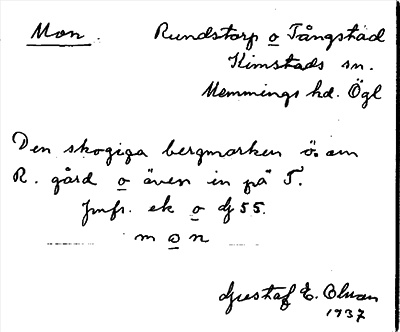 Mon.
Rundstorp o Tångstad
Kimstads sn.
Memmings hd. Ögl
Den skogiga bergmarken ö. om
R. gård o även in på T.
Jmfr. ek o dj 55.
mon
Gustaf E. Olson
1937